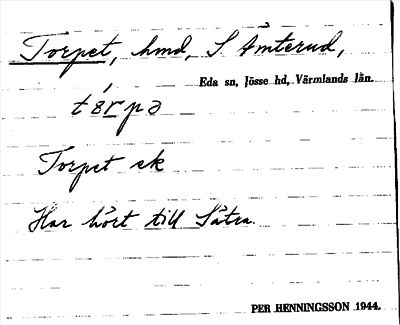 Torpet, hmd, S Åmterud,
Eda sn, Jösse hd, Värmlands län.
tórpə
Torpet ek
Har hört till Sätra.
PER HENNINGSSON 1944.